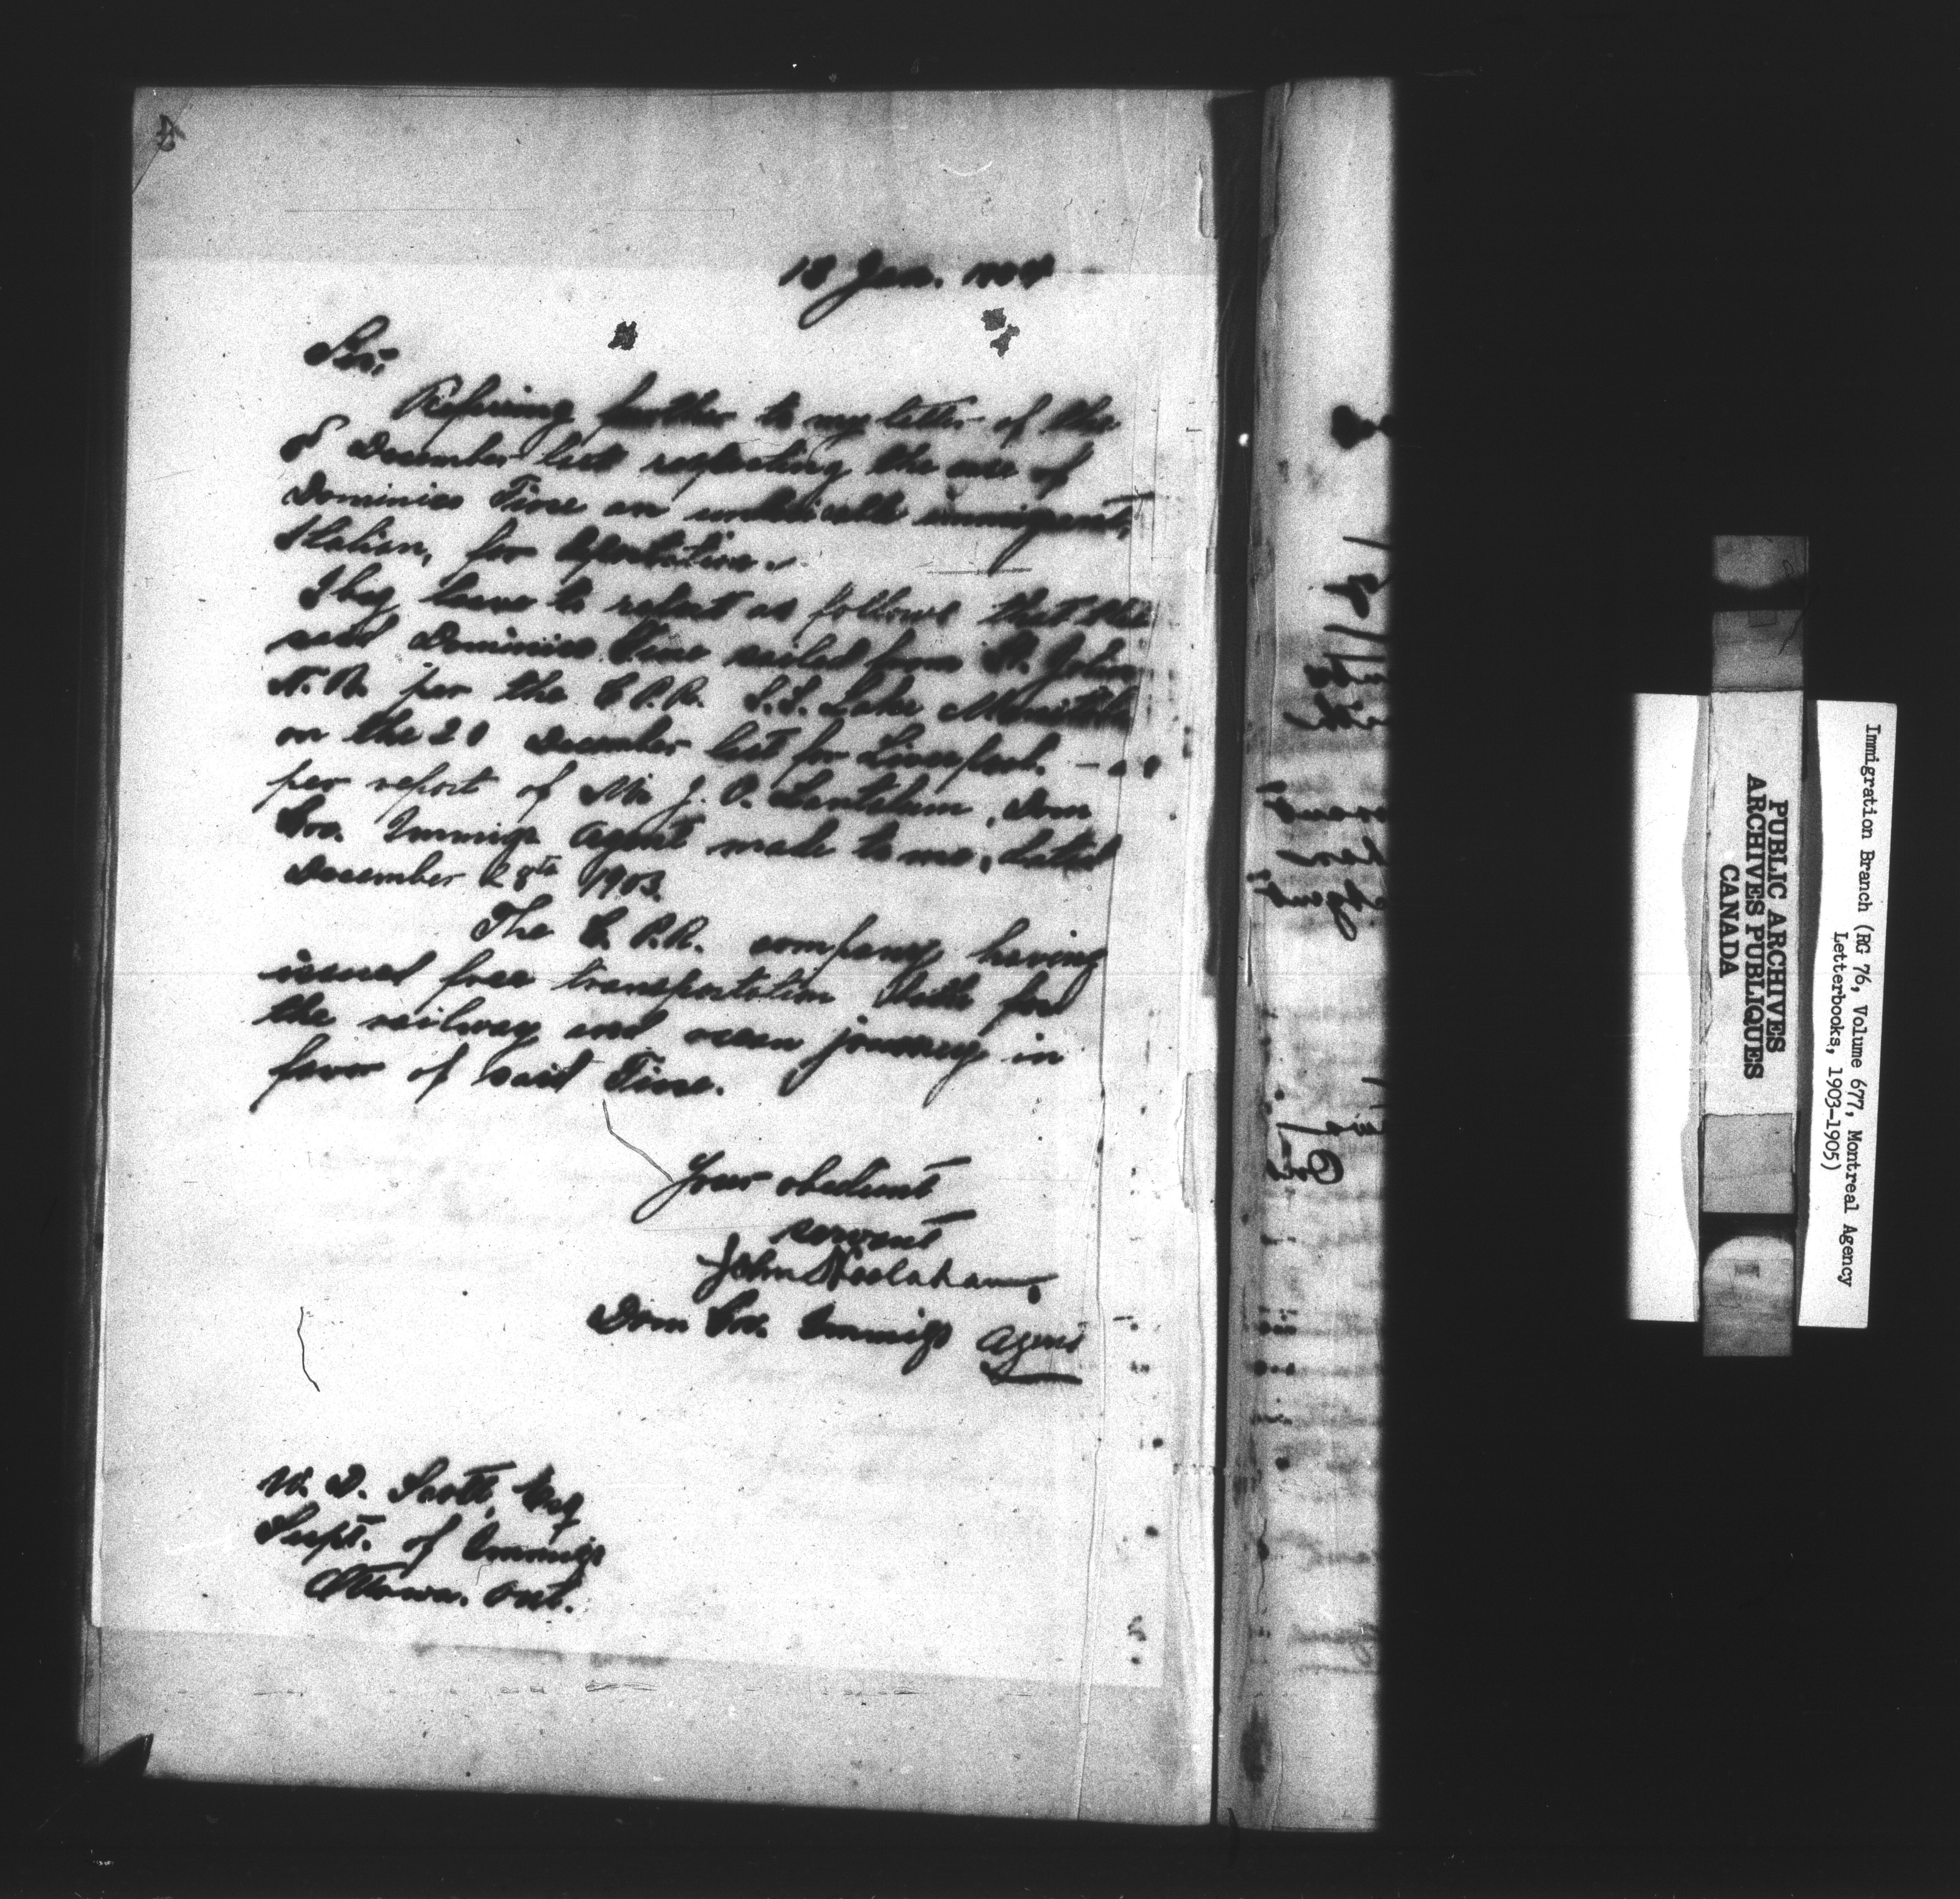 18 Jan. 1904
Sir,
Refering further to my letter of the
8 December last respecting the case of
Dominico Fiore an undesirable immigrant,
Italian, for deportation.
I beg leave to report as follows that the
said Dominico Fiore sailed from St. John
N.B. per the C.P.R. S.S. Lake Manitoba
on the 20 December last for Liverpool. — as
per report of Mr J. O. Lantalum, Dom
Gov. Immign Agent made to me, dated
December 28th 1903.
The C.P.R. company having
issued free transportation both for
the railway and ocean journey in
favor of said Fiore.
Your obedient
servant
John Hoolahan,
Dom Gov. Immign Agent
W. D. Scott, Esq
Supt. of Immign
Ottawa. Ont.
Immigration Branch (RG 76, Volume 677, Montreal Agency
Letterbooks, 1903-1905)
PUBLIC ARCHIVES
ARCHIVES PUBLIQUES
CANADA